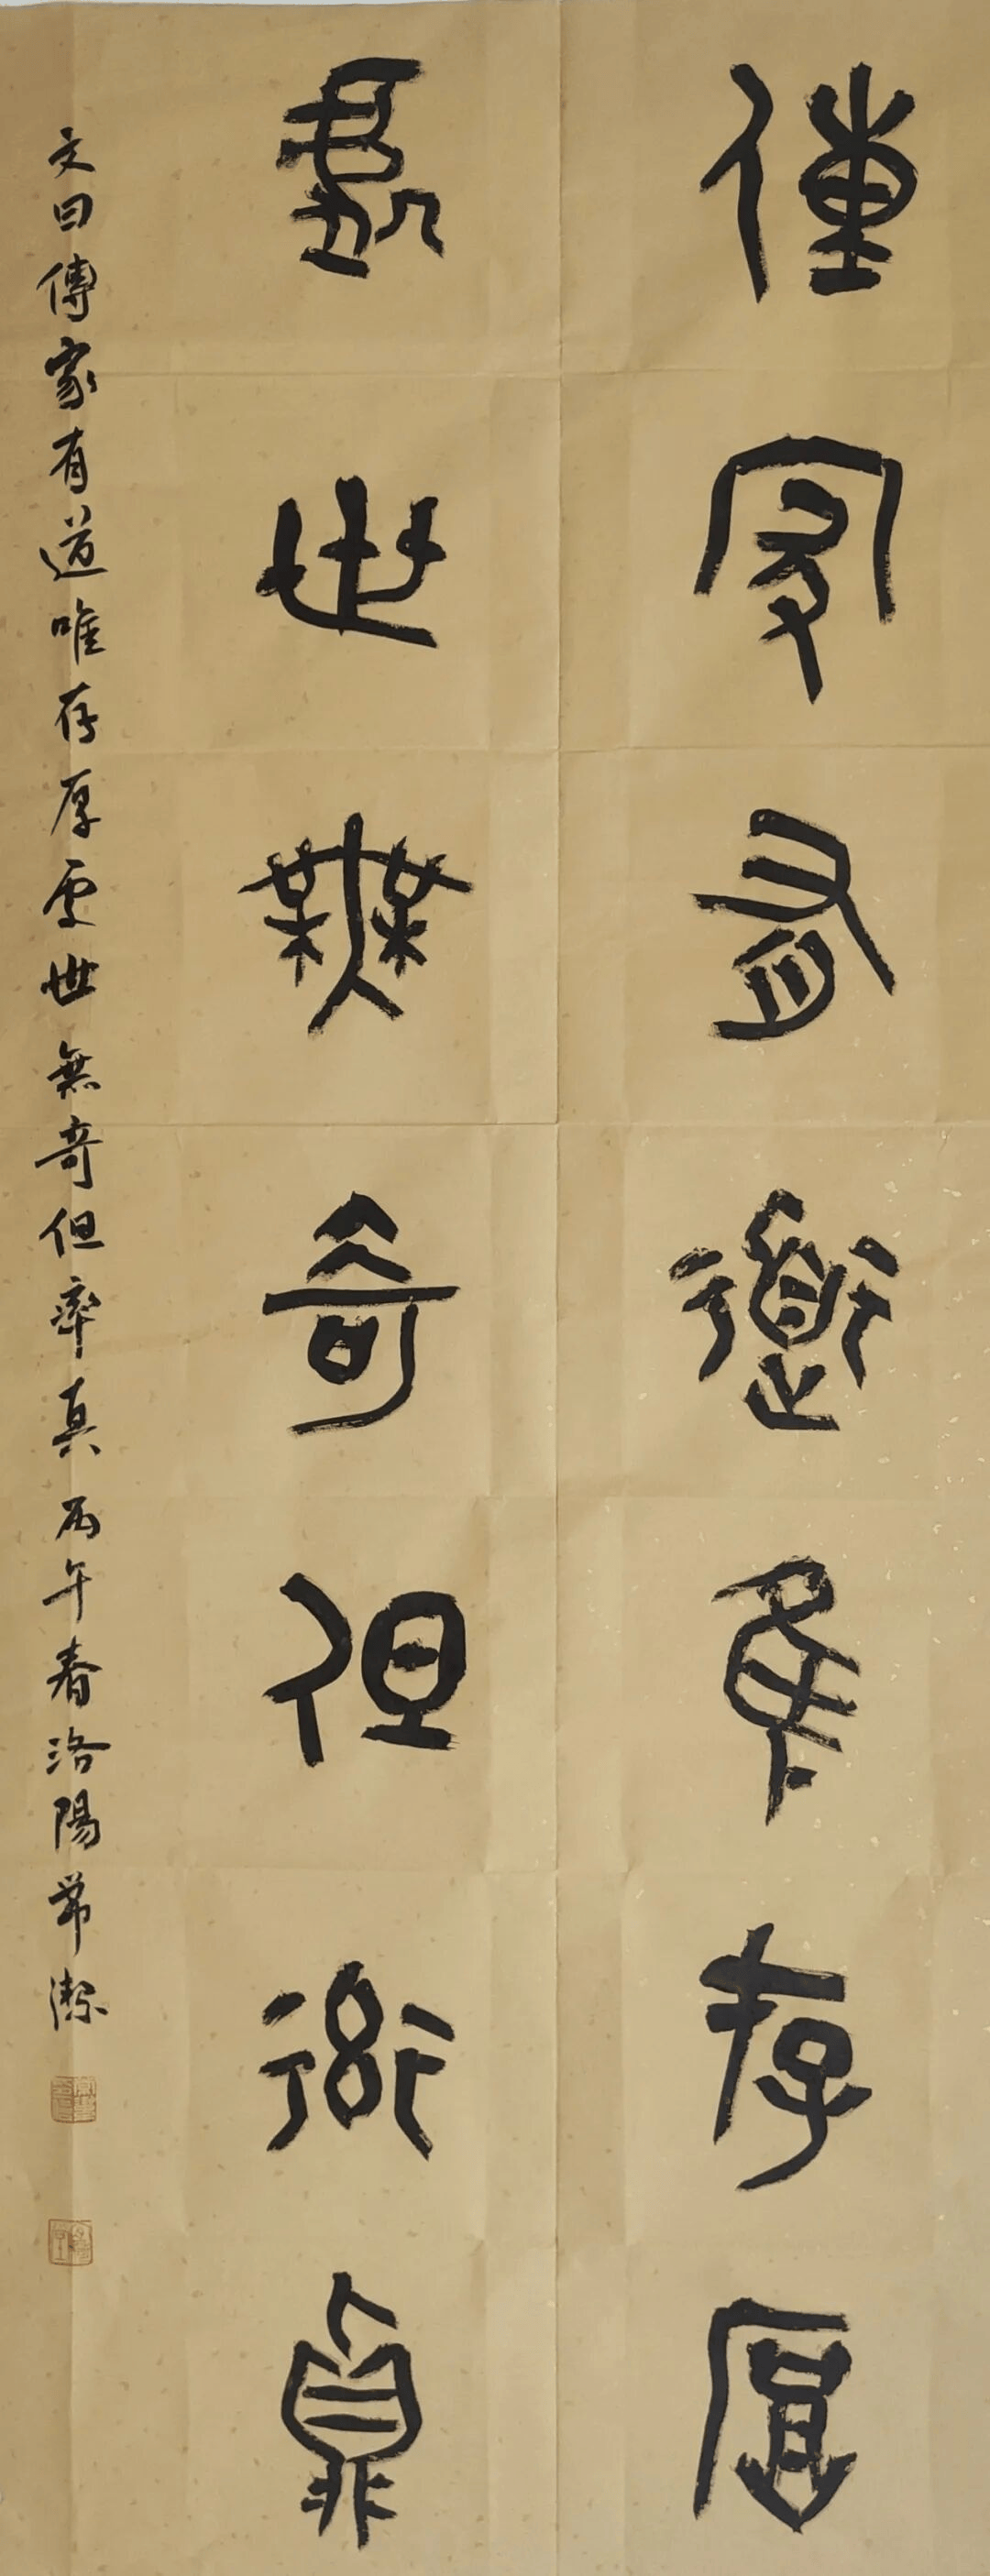 傳家有道唯存厚
處世無奇但率真
文曰傳家有道唯存厚處世無奇但率真丙午春洛陽常潔